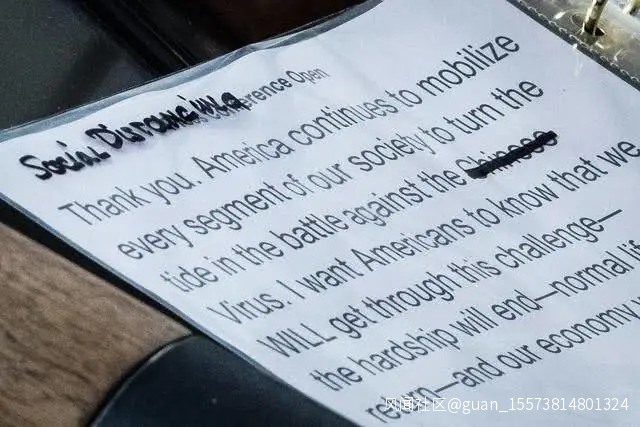 Social Distancing erence Open
Thank you. America continues to mobilize
every segment of our society to turn the
tide in the battle against the Chinese
Virus. I want Americans to know that we
WILL get through this challenge—
the hardship will end—normal
return—and our economy
风闻社区@guan_15573814801324